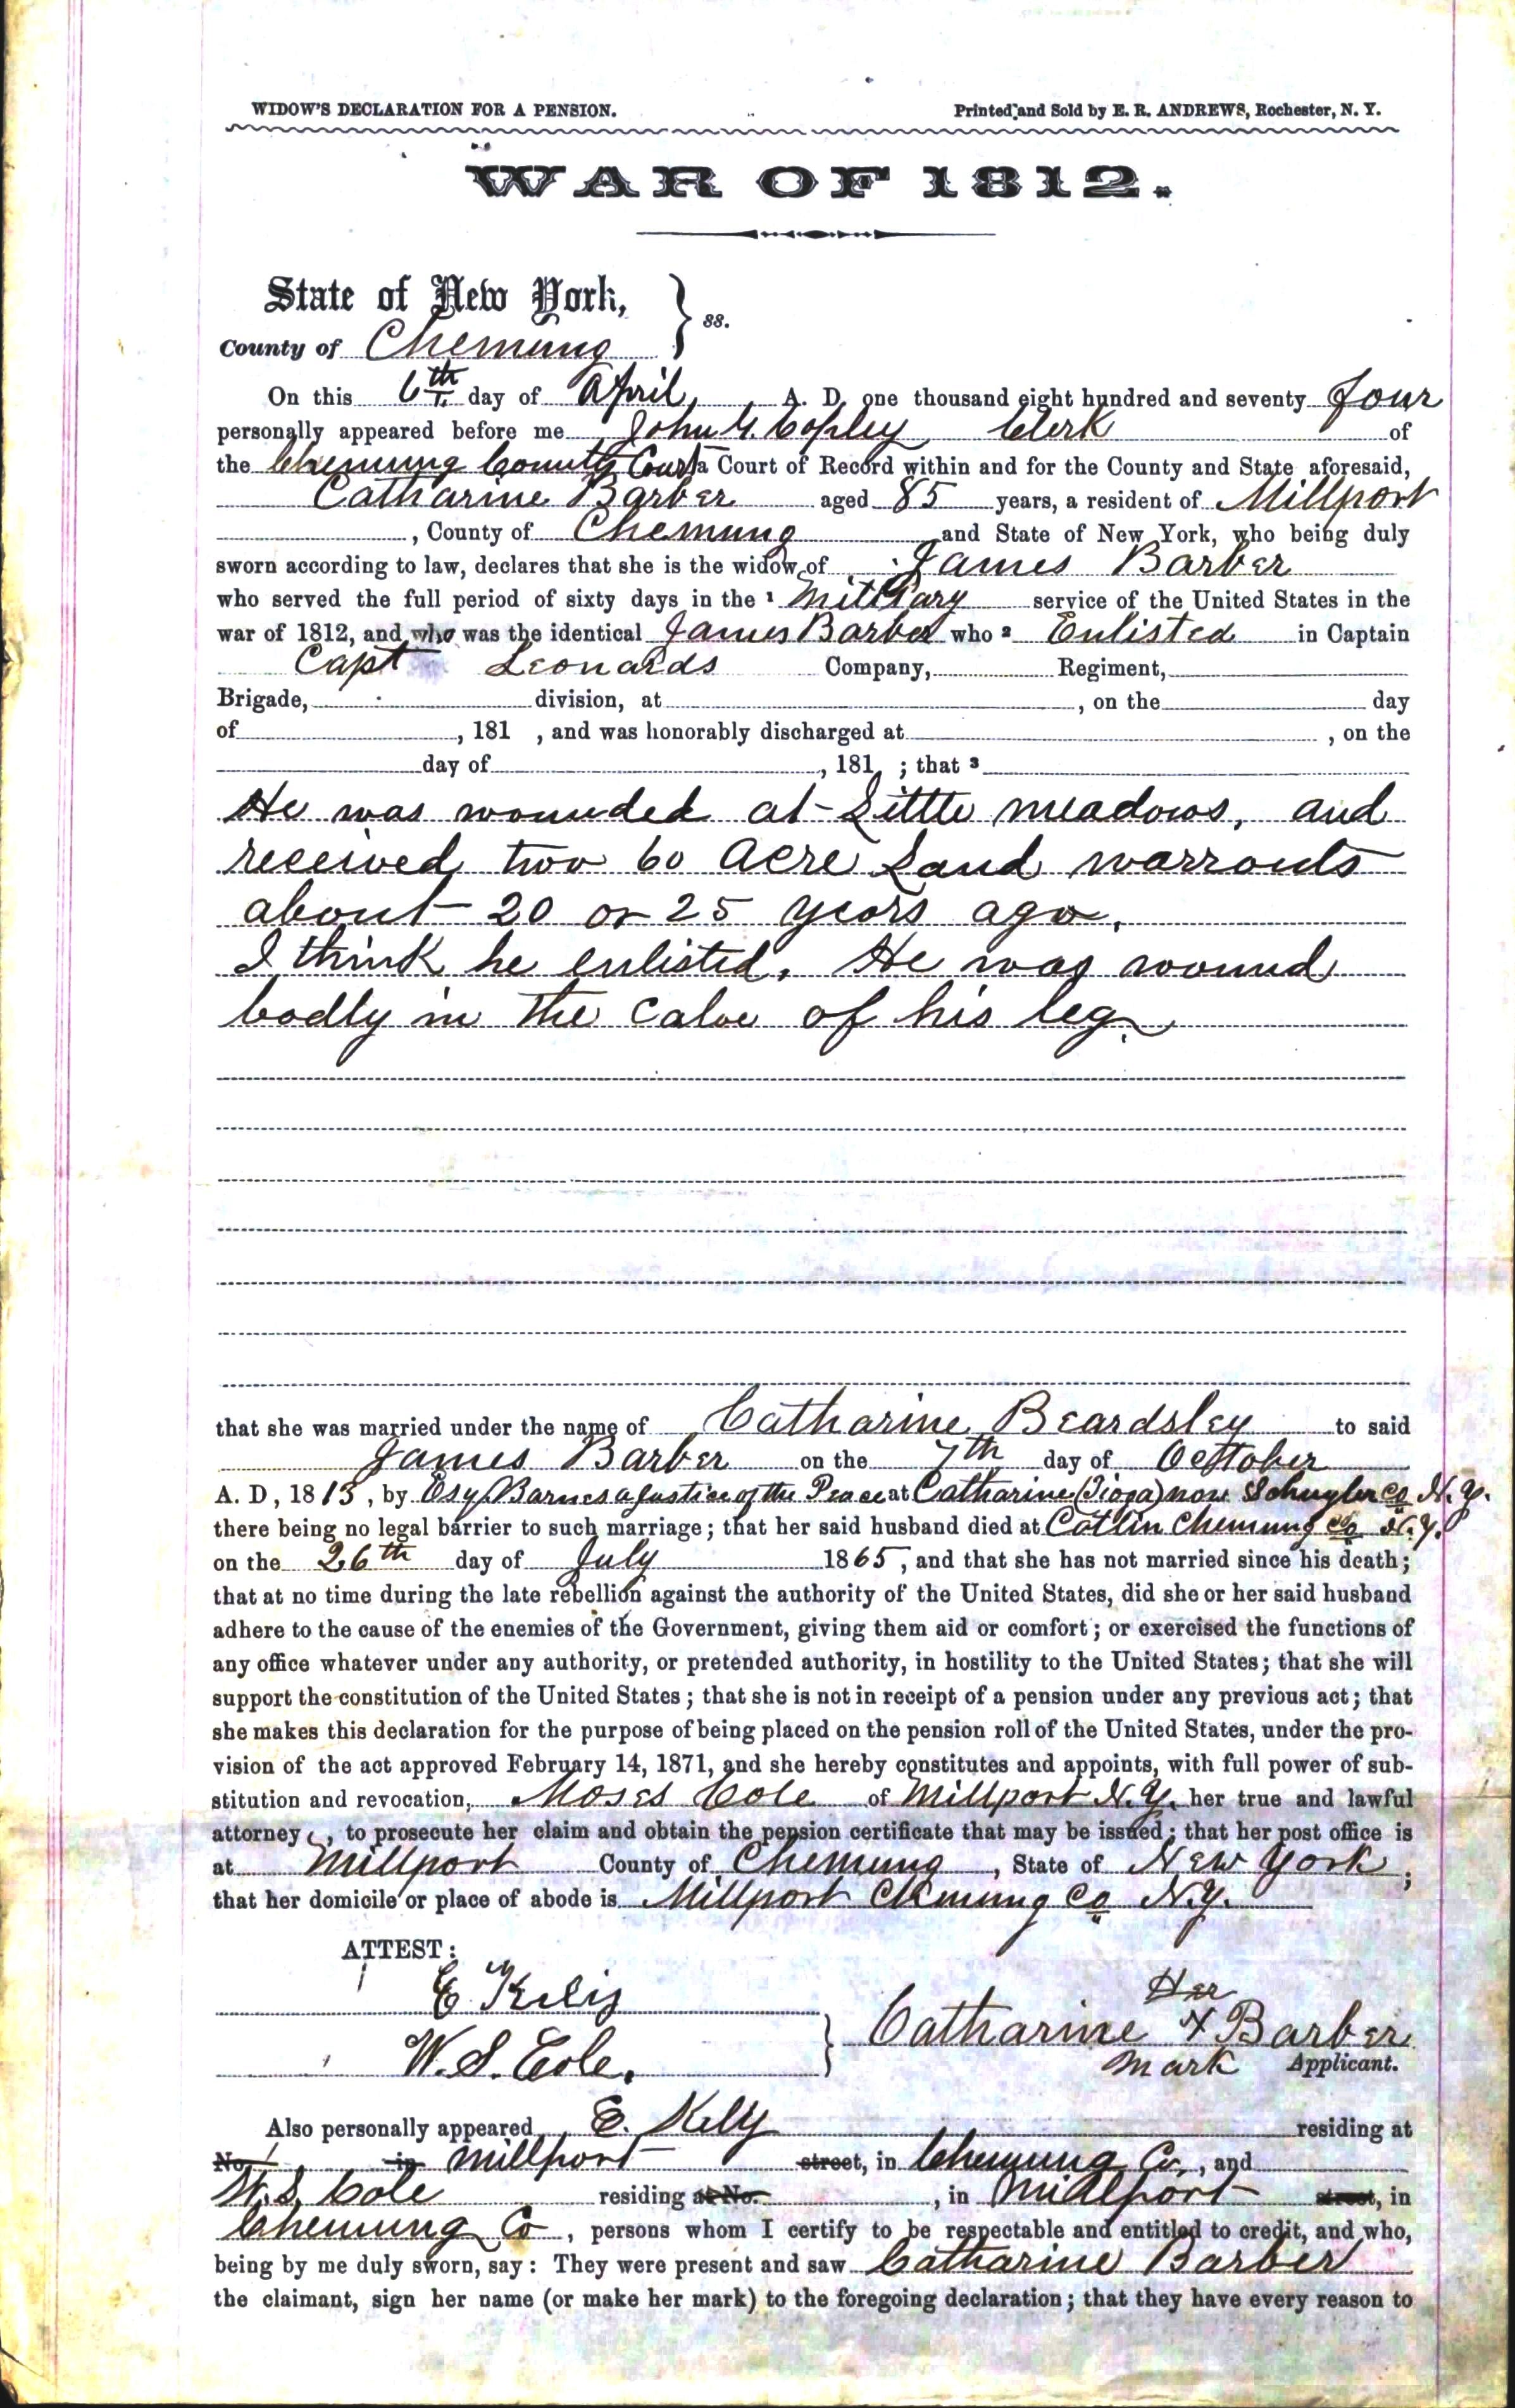 WIDOW'S DECLARATION FOR A PENSION. Printed and Sold by E. R. ANDREWS, Rochester, N. Y.
WAR OF 1812.
State of New York,
County of Chemung } ss.
On this 6th day of April, A. D. one thousand eight hundred and seventy four
personally appeared before me John G. Copley Clerk of
the Chemung County Court a Court of Record within and for the County and State aforesaid,
Catharine Barber aged 85 years, a resident of Millport
, County of Chemung and State of New York, who being duly
sworn according to law, declares that she is the widow of James Barber
who served the full period of sixty days in the 1 Military service of the United States in the
war of 1812, and who was the identical James Barber who 2 Enlisted in Captain
Capt Leonards Company, Regiment,
Brigade, division, at , on the day
of , 181 , and was honorably discharged at , on the
day of , 181 ; that 3
He was wounded at Little meadows, and
received two 60 acre Land warrants
about 20 or 25 years ago.
I think he enlisted. He was wound
badly in the calve of his leg.
that she was married under the name of Catharine Beardsley to said
James Barber on the 7th day of October
A. D, 1813, by Esq. Barnes a Justice of the Peace at Catharine (Tioga) now Schuyler Co N. Y.
there being no legal barrier to such marriage; that her said husband died at Catlin Chemung Co N. Y.
on the 26th day of July 1865, and that she has not married since his death;
that at no time during the late rebellion against the authority of the United States, did she or her said husband
adhere to the cause of the enemies of the Government, giving them aid or comfort; or exercised the functions of
any office whatever under any authority, or pretended authority, in hostility to the United States; that she will
support the constitution of the United States; that she is not in receipt of a pension under any previous act; that
she makes this declaration for the purpose of being placed on the pension roll of the United States, under the pro-
vision of the act approved February 14, 1871, and she hereby constitutes and appoints, with full power of sub-
stitution and revocation, Moses Cole of Millport N. Y. her true and lawful
attorney , to prosecute her claim and obtain the pension certificate that may be issued; that her post office is
at Millport County of Chemung , State of New York ;
that her domicile or place of abode is Millport Chemung Co N. Y.
ATTEST:
E Kely
W. S. Cole.
Her
Catharine X Barber
mark Applicant.
Also personally appeared E. Kely residing at
No. in Millport street, in Chemung Co., and
W. S. Cole residing at No. , in Millport street, in
Chemung Co , persons whom I certify to be respectable and entitled to credit, and who,
being by me duly sworn, say: They were present and saw Catharine Barber
the claimant, sign her name (or make her mark) to the foregoing declaration; that they have every reason to